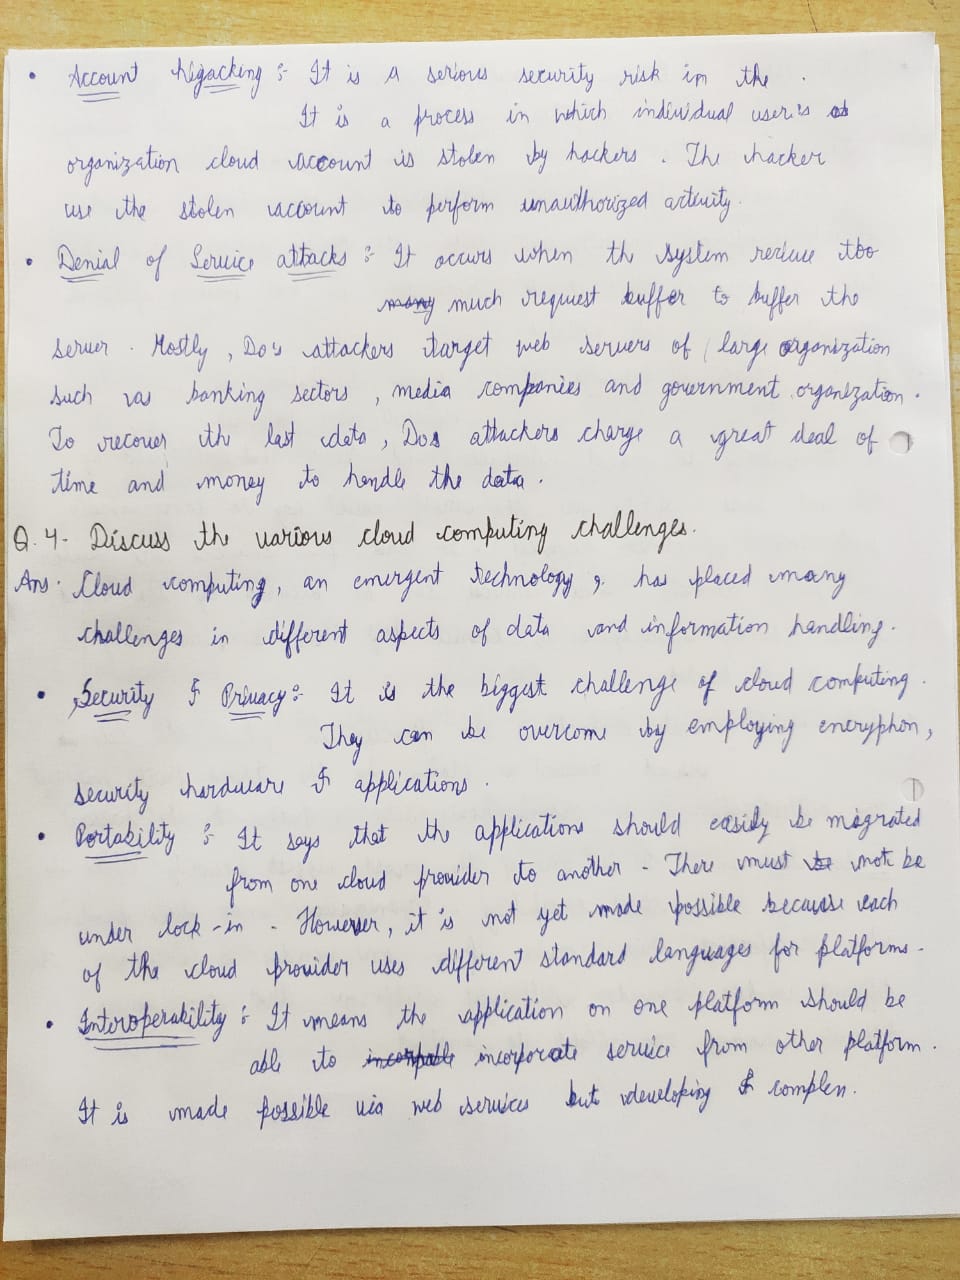 • Account higacking :- It is a serious security risk in the .
It is a process in which individual user's or
organization cloud account is stolen by hackers . The hacker
use the stolen account to perform unauthorized activity.
• Denial of Service attacks :- It occurs when th system recieve too
many much request buffer to buffer the
server . Mostly , Do's attackers target web servers of large organization
such as banking sectors , media companies and government organization .
To recover th last data , Dos attackers charge a great deal of
time and money to handle the data .
Q.4. Discuss the various cloud computing challenges.
Ans. Cloud computing, an emergent technology , has placed many
challenges in different aspects of data and information handling.
• Security & Privacy :- It is the biggest challenge of cloud computing .
They can be overcome by employing encryption ,
security hardware & applications .
• Portability :- It says that the applications should easily be migrated
from one cloud provider to another . There must be not be
under lock-in . However, it is not yet made possible because each
of the cloud provider uses different standard languages for platforms .
• Interoperability :- It means the application on one platform should be
able to incorporate service from other platform .
It is made possible via web services but developing & complex.